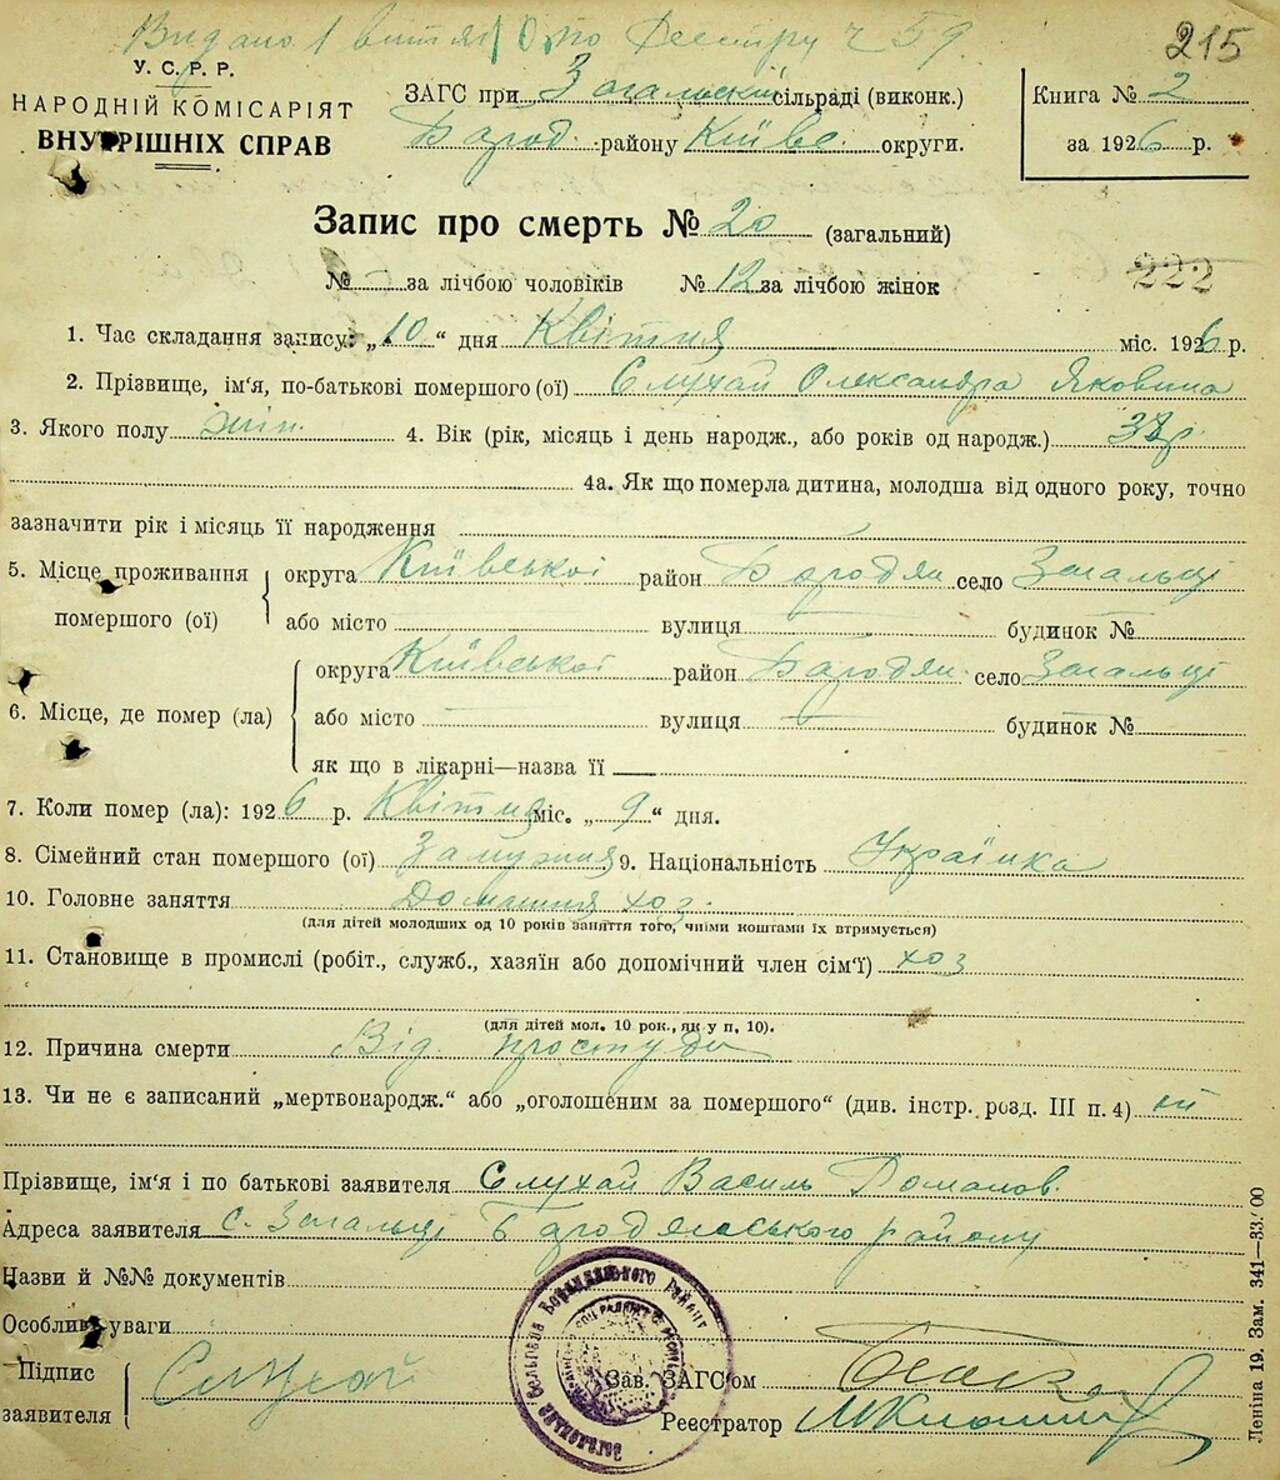 Видано 1 витяг по Реєстру ч 59.
215
У. С. Р. Р.
НАРОДНІЙ КОМІСАРІЯТ
ВНУТРІШНІХ СПРАВ
ЗАГС при Загальській сільраді (виконк.)
Бород. району Київс. округи.
Книга № 2
за 1926 р.
Запис про смерть № 20 (загальний)
№ – за лічбою чоловіків № 12 за лічбою жінок
222
1. Час складання запису: „10“ дня Квітня міс. 1926 р.
2. Прізвище, ім'я, по-батькові помершого (ої) Слухай Олександра Яковина
3. Якого полу жін. 4. Вік (рік, місяць і день народж., або років од народж.)
4а. Як що померла дитина, молодша від одного року, точно
зазначити рік і місяць її народження
5. Місце проживання помершого (ої) округа Київської район Бородян село Загальці
або місто вулиця будинок №
6. Місце, де помер (ла) округа Київської район Бородян. село Загальці
або місто вулиця будинок №
як що в лікарні—назва її
7. Коли помер (ла): 1926 р. Квітня міс. „9“ дня.
8. Сімейний стан помершого (ої) Замужня 9. Національність Українка
10. Головне заняття Домашня хоз.
(для дітей молодших од 10 років заняття того, чиїми коштами їх втримується)
11. Становище в промислі (робіт., служб., хазяїн або допомічний член сім'ї) хоз
(для дітей мол. 10 рок., як у п. 10).
12. Причина смерти Від простуди
13. Чи не є записаний „мертвонародж.“ або „оголошеним за помершого“ (див. інстр. розд. III п. 4) ні
Прізвище, ім'я і по батькові заявителя Слухай Василь Романов.
Адреса заявителя с. Загальці Бородянського району
Назви й №№ документів
Особливі уваги
Підпис заявителя Слухай
Зав. ЗАГС'ом
Реєстратор
Леніна 19. Зам. 341—33.